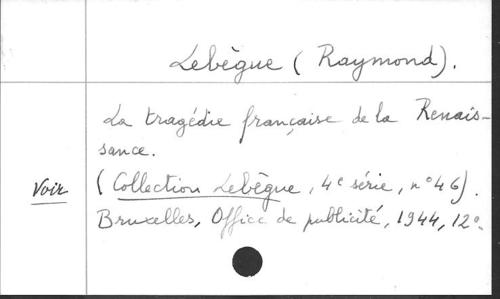 Lebègue (Raymond).
La tragédie française de la Renais-
sance.
Voir
(Collection Lebègue, 4e série, n° 46).
Bruxelles, Office de publicité, 1944, 12°.